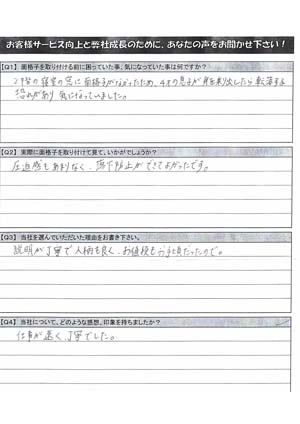 お客様サービス向上と弊社成長のために、あなたの声をお聞かせ下さい！
【Q1】 面格子を取り付ける前に困っていた事、気になっていた事は何ですか？
2階の寝室の窓に面格子がなかったため、4才の息子が身を乗り出したら転落する
恐れがあり気になっていました。
【Q2】 実際に面格子を取り付けて見て、いかがでしょうか？
圧迫感もあまりなく、落下防止ができてよかったです。
【Q3】 当社を選んでいただいた理由をお書き下さい。
説明が丁寧で人柄も良く、お値段もお手頃だったので。
【Q4】 当社について、どのような感想、印象を持ちましたか？
仕事が速く、丁寧でした。